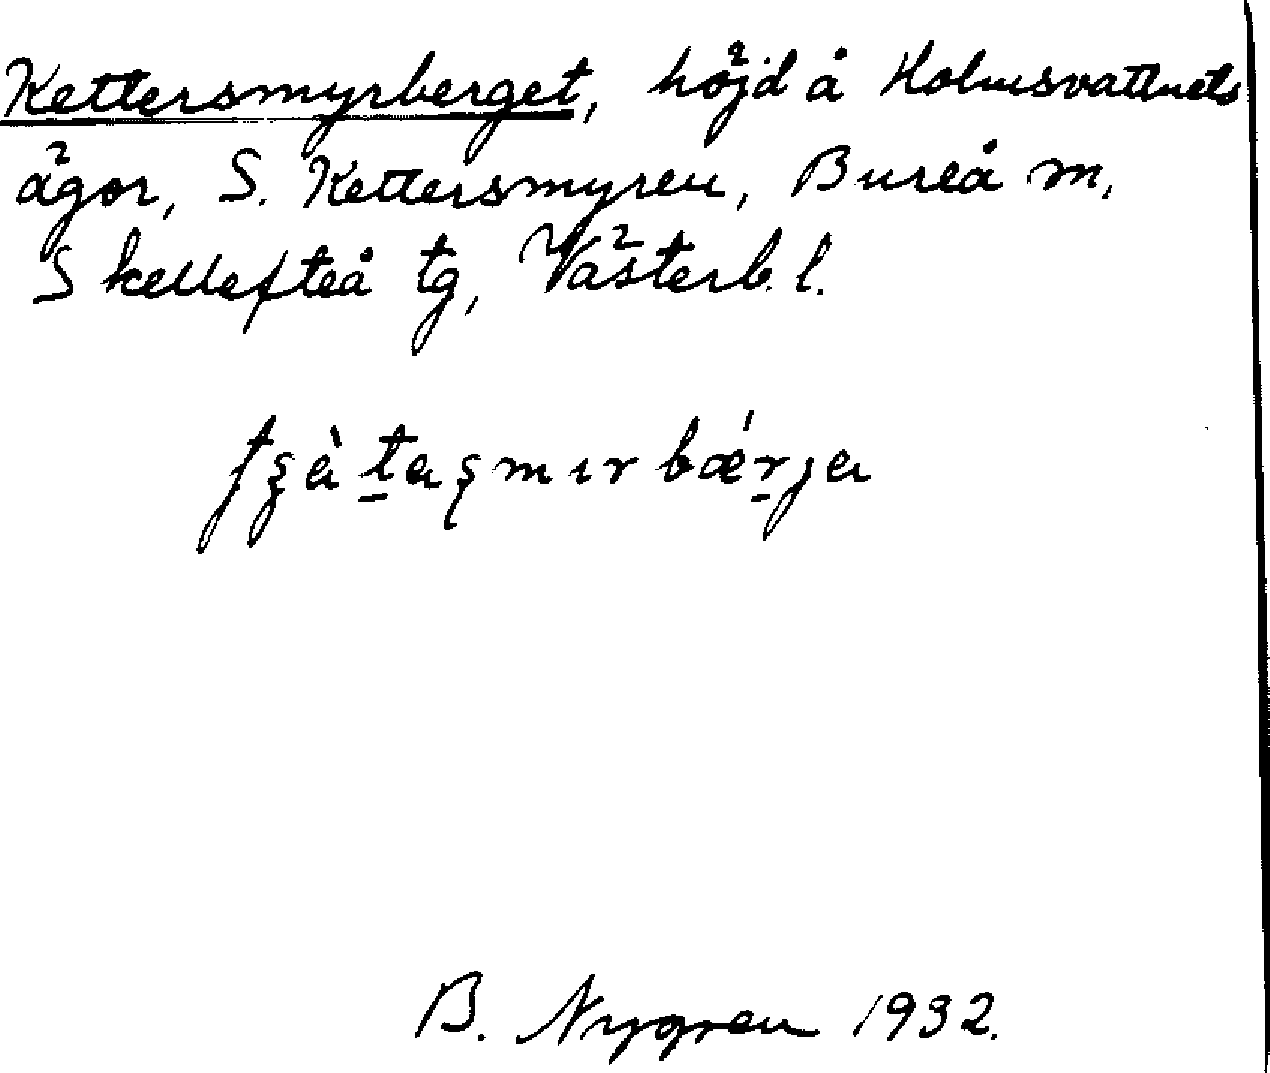 Kettersmyrberget, höjd å Holmsvattnets
ägor, S. Kettersmyren, Bureå m,
Skellefteå tg, Västerb. l.
B. Nygren 1932.